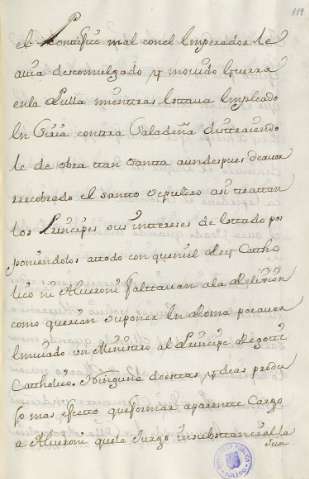 119
el Pontifice mal con el Emperador le
auia descomulgado y mouido Guerra
en la Pulla mientras estaua empleado
En Siria contra Saladino distrayendo
le de obra tan Santa aun despues de auer
recobrado el santo sepulcro asi tratan
los Principes sus intereses de estado pos
poniendolos a todo con que ni el Rey Catho
lico ni Alueroni faltauan a la Religion
como querian suponer En Roma por auer
Embiado un Ministro al Principe
Catholico. Ninguna de estas y deas produ
jo mas efecto que formar aparente Cargo
a Alueroni que le Juzgo insubstancial la
Jun